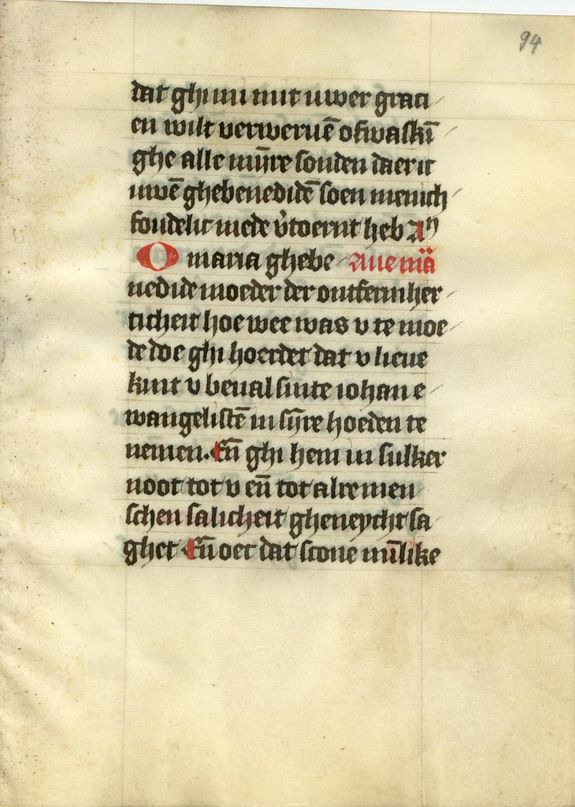 94
dat ghi mi mit uwer graci
en wilt verwervē ofwaskī
ghe alle mijre sonden daer ic
uwē ghebenedidē soen menich
foudelic mede v̄toernt heb Am̄
O maria ghebe Aue mā
nedide moeder der ontfermher
ticheit hoe wee was v te moe
de doe ghi hoerdet dat v lieue
kint v beual sinte iohan e
wangelistē in sijre hoeden te
nemen. Eñ ghi hem in sulker
noot tot v eñ tot alre men
schen salicheit gheneycht sa
ghet Eñ oec dat scone mīlike